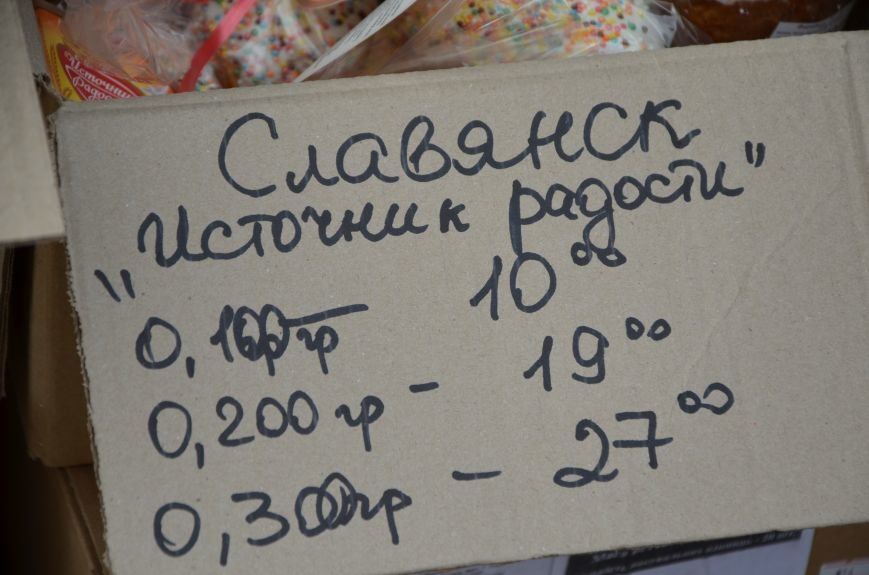 Источник
Радости
Славянск
"Источник радости"
0,100гр 10⁰⁰
0,200гр - 19⁰⁰
0,300гр - 27⁰⁰